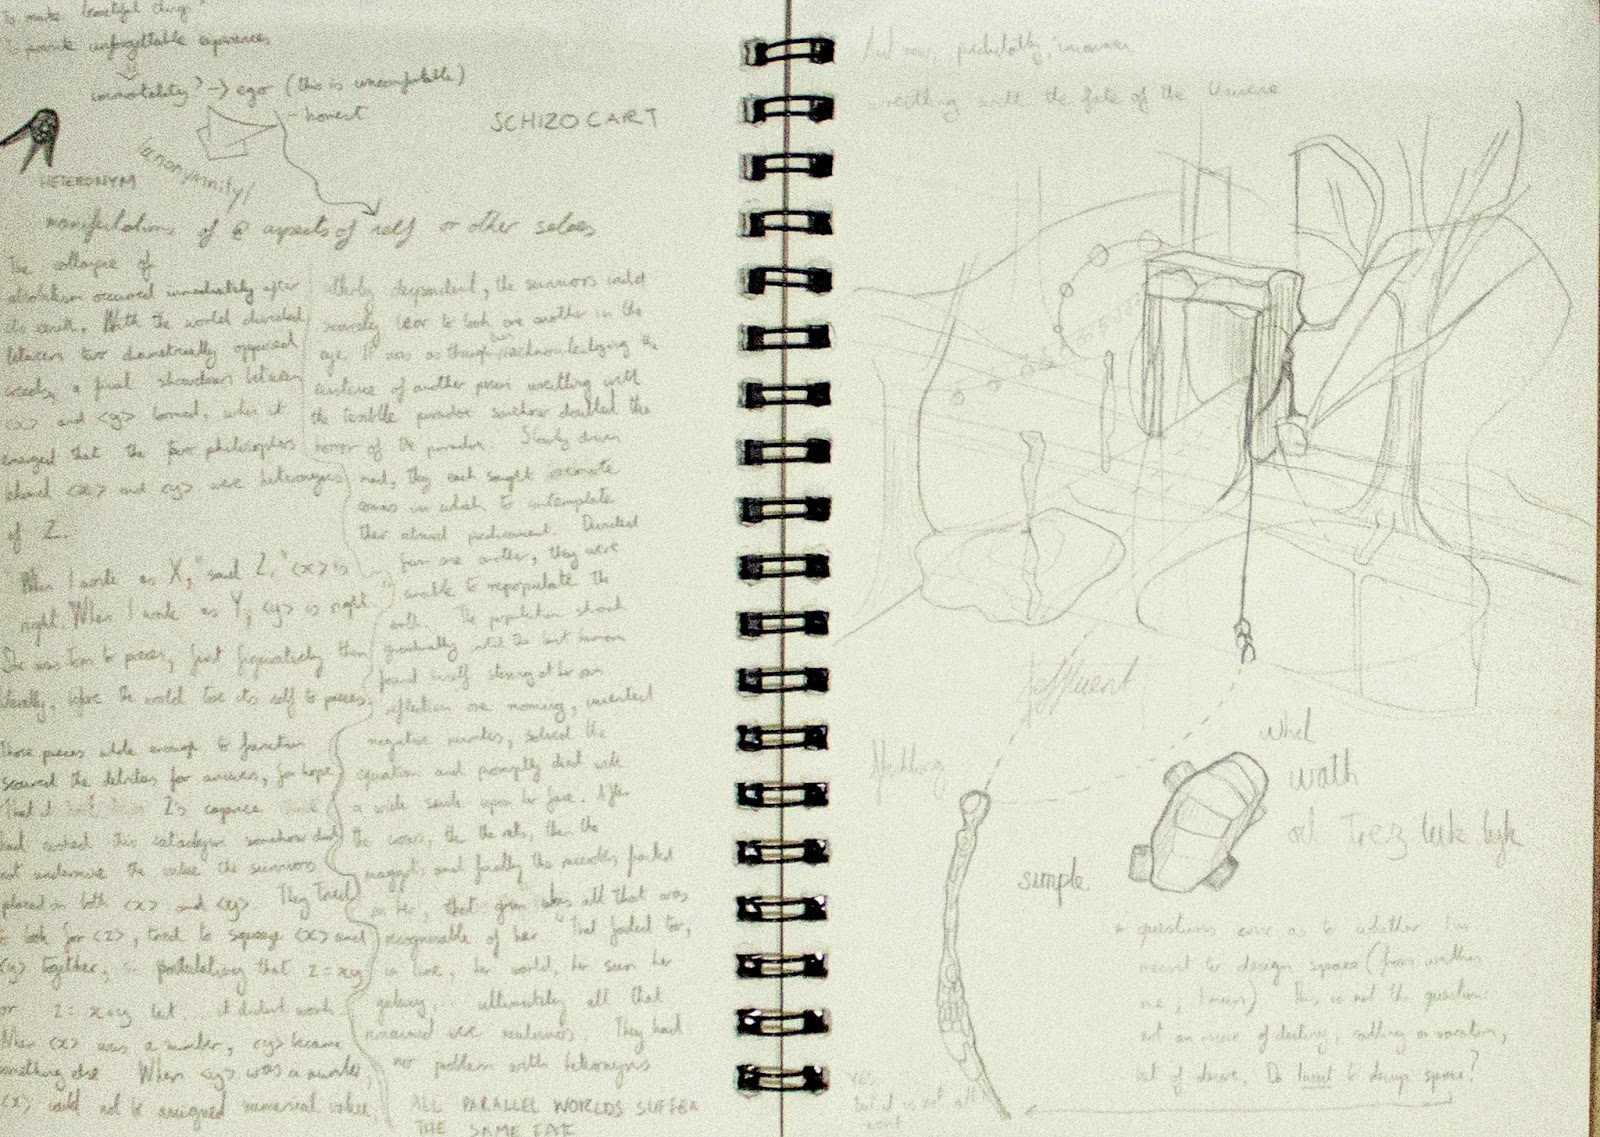 to make beautiful things
to provide unforgettable experiences
immortality? → ego (this is uncomfortable)
- honest
SCHIZOCART
HETERONYM
(anonymnity/
manifestations of @ aspects of self or other selves
The collapse of
absolutism occurred immediately after
its zenith. With the world divided
between two diametrically opposed
creeds, a final showdown between
<x> and <y> loomed, when it
emerged that the two philosophers
behind <x> and <y> were heteronyms
of Z.
"When I write as X," said Z, "<x> is
right. When I write as Y, <y> is right.
She was torn to pieces, first figuratively then
literally, before the world tore its self to pieces.
Those pieces able enough to function
scoured the debris for answers, for hope
That Z's caprice
had caused this cataclysm somehow did
not undermine the value the survivors
placed in both <x> and <y>. They tried
to look for <z>, tried to squeeze <x> and
<y> together, postulating that z = xy
or z = x+y but... it didn't work.
When <x> was a number, <y> became
something else. When <y> was a number,
<x> could not be assigned numerical value.
utterly dependent, the survivors could
scarcely bear to look one another in the
eye. It was as though acknowledging the
existence of another person wrestling with
the terrible paradox somehow doubled the
horror of the paradox. Slowly driven
mad, they each sought remote
caves in which to contemplate
their absurd predicament. Divided
from one another, they were
unable to repopulate the
earth. The population shrank
gradually until the last human
found herself staring at her own
reflection one morning, invented
negative numbers, solved the
equation and promptly died with
a wide smile upon her face. After
the crows, the rats, then the
maggots and finally the microbes feasted
on her, that grin was all that was
recognisable of her. That faded too,
in time, her world, her sun her
galaxy... ultimately all that
remained were. They had
no problem with heteronyms
ALL PARALLEL WORLDS SUFFER
THE SAME FATE
And now, predictably,
wrestling with the fate of the Universe
effluent
Nothing
wheel
walk
simple
* questions come as to whether I'm
meant to design space (from within
me, I mean). This is not the question:
not an issue of destiny, calling or vocation,
but of desire. Do I want to design space?
YES
but it is not all I
want